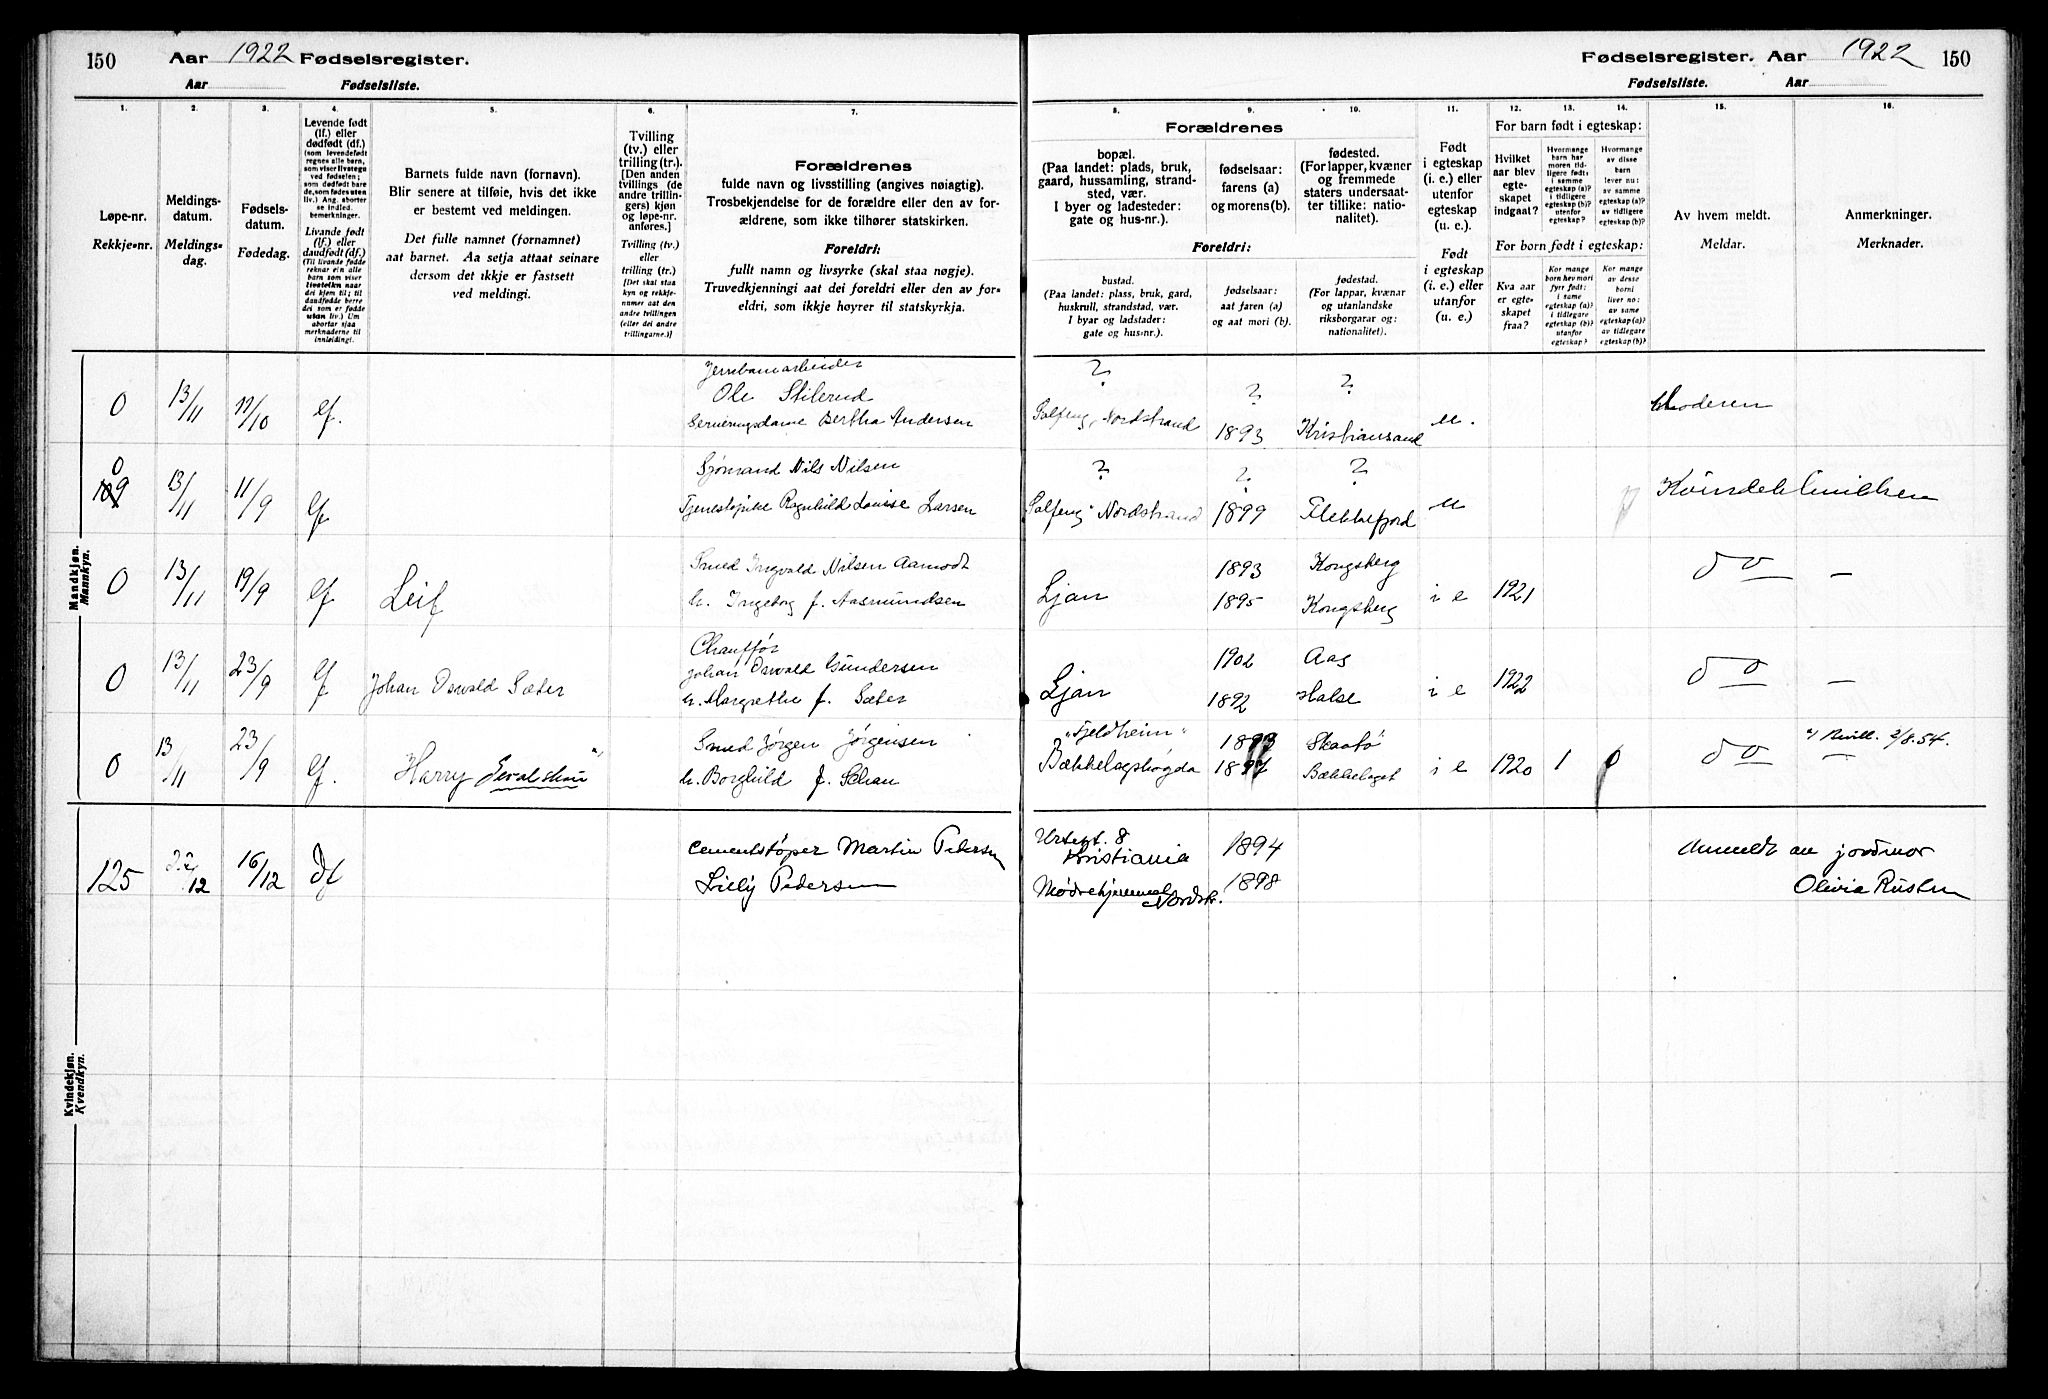 150 Aar 1922 Fødselsregister.
Aar Fødselsliste.
Fødselsregister. Aar 1922 150
Fødselsliste. Aar
1. 2. 3. 4. 5. 6. 7.
Løpe-nr.
Rekkje-nr.
Meldings-
datum.
Meldings-
dag.
Fødsels-
datum.
Fødedag.
Levende født
(lf.) eller
dødfødt (df.)
(som levendefødt
regnes alle barn,
som viser livstegn
ved fødselen;
som dødfødt bare
de, som fødes uten
liv.) Ang. aborter
se indled.
bemerkninger.
Livande født
(lf.) eller
daudfødt (df.)
(Til livande fødde
reknar ein alle
barn som viser
livsteikn naar
dei kjem til; til
daudfødde berre
dei som er fødde
utan liv.) Um
abortar sjaa
merknaderne til
innleidingi.
Barnets fulde navn (fornavn).
Blir senere at tilføie, hvis det ikke
er bestemt ved meldingen.
Det fulle namnet (fornamnet)
aat barnet. Aa setja attaat seinare
dersom det ikkje er fastsett
ved meldingi.
Tvilling
(tv.) eller
trilling (tr.).
[Den anden
tvillings (de
andre trillin-
gers) kjøn
og løpe-nr.
anføres.]
Tvilling (tv.)
eller
trilling (tr.)
[Det skal staa
kyn og rekkje-
nummer aat den
andre tvillingen
(eller dei andre
trillingarne.)]
Forældrenes
fulde navn og livsstilling (angives nøiagtig).
Trosbekjendelse for de forældre eller den av for-
ældrene, som ikke tilhører statskirken.
Foreldri:
fullt namn og livsyrke (skal staa nøgje).
Truvedkjenningi aat dei foreldri eller den av for-
eldri, som ikkje høyrer til statskyrkja.
8. 9. 10. 11. 12. 13. 14. 15. 16.
Forældrenes
bopæl.
(Paa landet: plads, bruk,
gaard, hussamling, strand-
sted, vær.
I byer og ladesteder:
gate og hus-nr.).
fødselsaar:
farens (a)
og morens (b).
fødested.
(For lapper, kvæner
og fremmede
staters undersaat-
ter tillike: natio-
nalitet).
Foreldri:
bustad.
(Paa landet: plass, bruk, gard,
huskrull, strandstad, vær.
I byar og ladstader:
gate og hus-nr.).
fødselsaar:
aat faren (a)
og aat mori (b).
fødestad.
(For lappar, kvænar
og utanlandske
riksborgarar og:
nationalitet).
Født
i egteskap
(i. e.) eller
utenfor
egteskap
(u. e.).
Født
i egteskap
(i. e.) eller
utanfor
(u. e.)
For barn født i egteskap:
Hvilket
aar blev
egte-
skapet
indgaat?
Hvormange
barn har
moren tid-
ligere født:
i samme
egteskap (a)?
i tidligere
egteskap (b)?
utenfor
egteskap?
Hvormange
av disse
barn
lever nu:
av samme
egteskap (a)?
av tidligere
egteskap (b)?
For born født i egteskap:
Kva aar
er egte-
skapet
fraa?
Kor mange
born hev mori
fyrr født:
i same
egteskap (a)?
i tidlegare
egteskap (b)?
utanfor
egteskap?
Kor mange
av desse
borni
liver no:
av same
egteskap (a)?
av tidlegare
egteskap (b)?
Av hvem meldt.
Meldar.
Anmerkninger.
Merknader.
Mandkjøn.
Mannkyn.
Jernbanearbeider ?
0 13/11 17/10 lf. Ole Stilerud ? ?
Serveringsdame Bertha Andersen Solfeng, Nordstrand 1893 Kristiansand u. Moderen
0
109 13/11 11/9 lf Sjømand Nils Nilsen ? ? ?
Tjenestepike Ragnhild Louise Larsen Solfeng, Nordstrand 1899 Flekkefjord u Kvindeklinikken
0 13/11 19/9 lf Leif Smed Ingvald Nilsen Aamodt 1893 Kongsberg
h. Ingeborg f. Aasmundsen Ljan 1895 Kongsberg i e 1921 do —
0 13/11 23/9 lf Johan Oswald Sæter Chauffør
Johan Oswald Gundersen 1902 Aas
h. Margrethe f. Sæter Ljan 1892 Halse i e 1922 do —
0 13/11 23/9 lf. Harry Smed Jørgen Jørgensen "Fjeldheim" 1893 Skaatø
h. Borghild f. Schau Bækkelagshøgda 1897 Bækkelaget i e 1920 1 0 do —
2/8.54.
Kvindekjøn.
Kvendkyn.
125 22/12 16/12 Df Cementstøper Martin Pedersen Urtegt. 8
Kristiania 1894
Lilly Pedersen Mødrehjemmet
Nordstr. 1898
Anmeldt av jordmor
Olivia Rusten